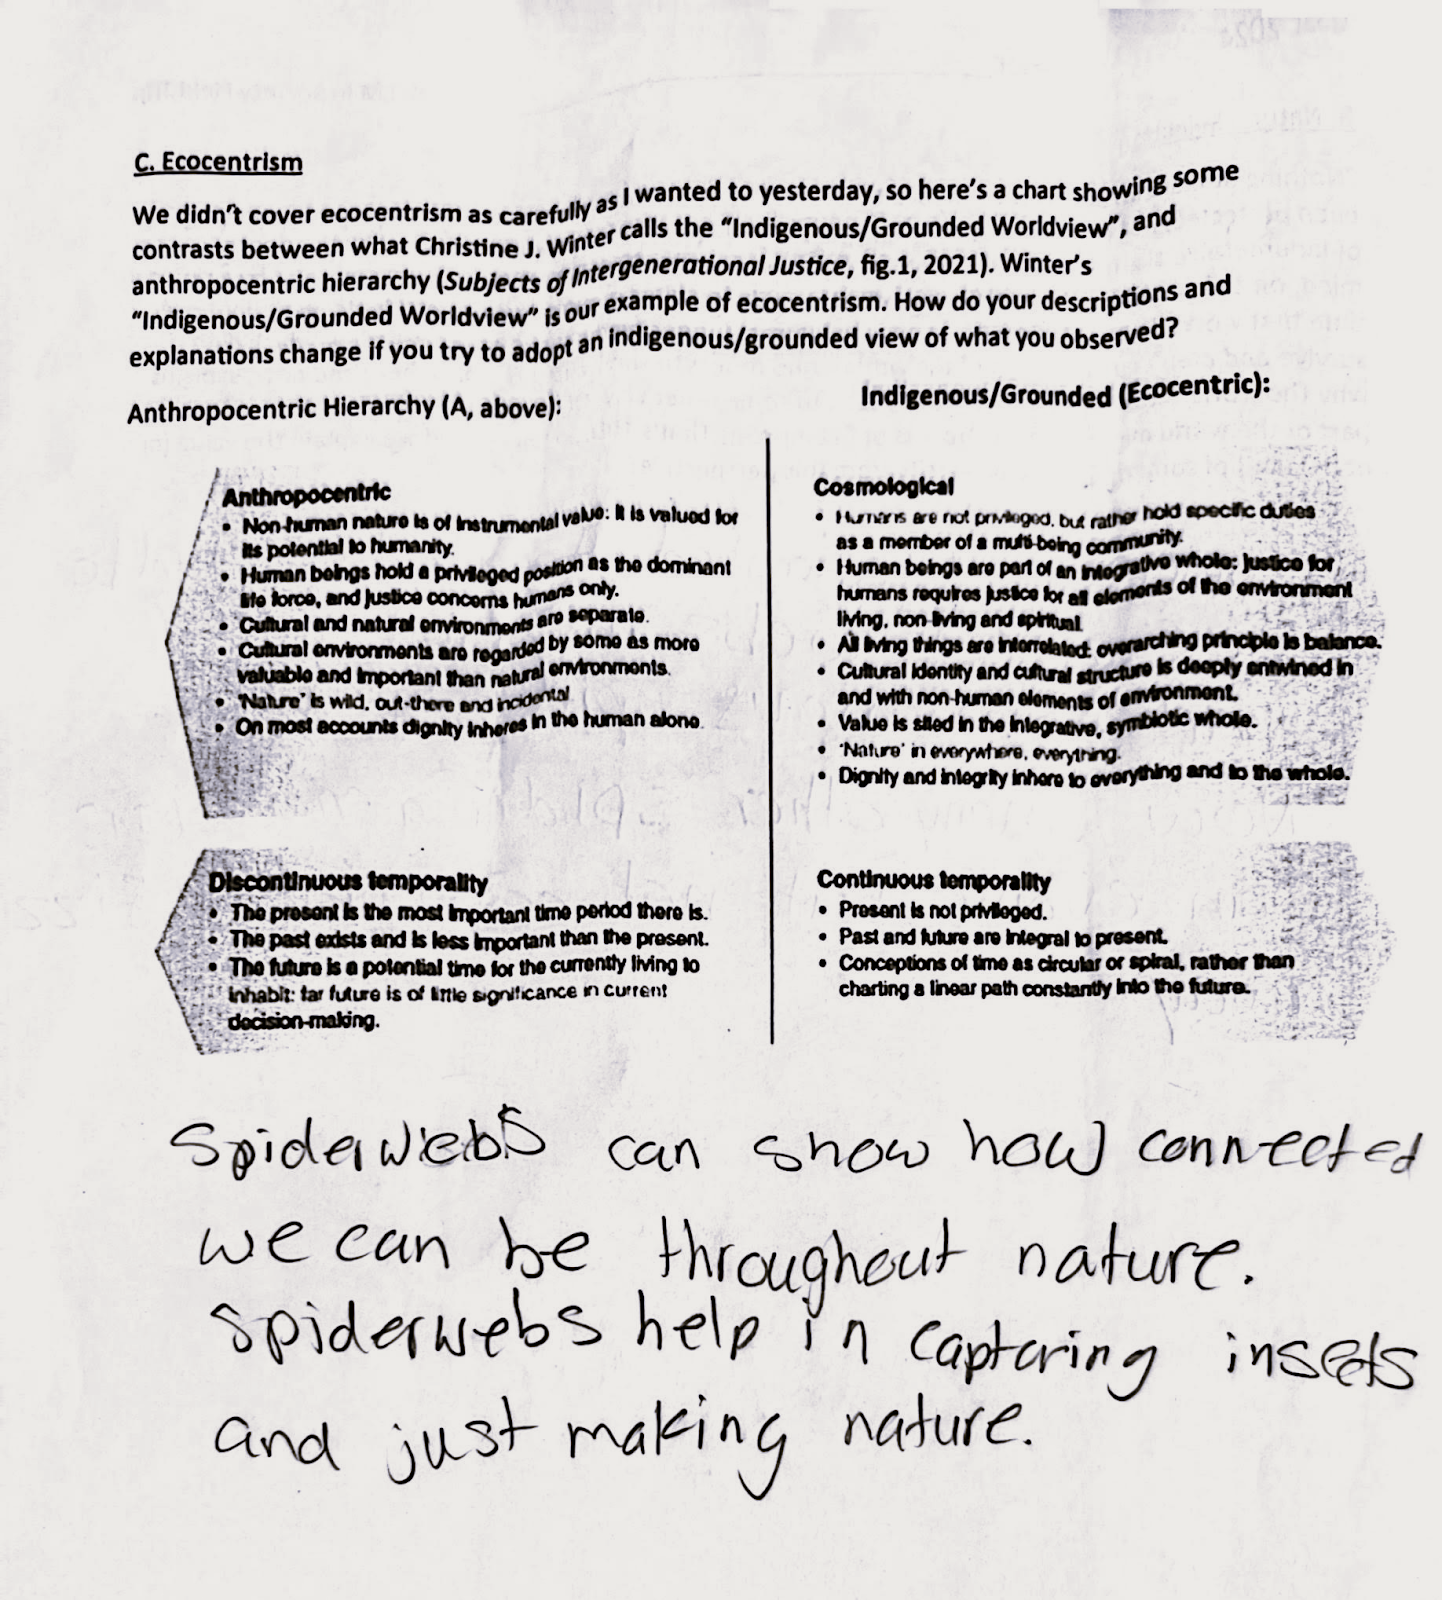 C. Ecocentrism
We didn't cover ecocentrism as carefully as I wanted to yesterday, so here's a chart showing some
contrasts between what Christine J. Winter calls the "Indigenous/Grounded Worldview", and
anthropocentric hierarchy (Subjects of Intergenerational Justice, fig.1, 2021). Winter's
"Indigenous/Grounded Worldview" is our example of ecocentrism. How do your descriptions and
explanations change if you try to adopt an indigenous/grounded view of what you observed?
Anthropocentric Hierarchy (A, above):
Anthropocentric
• Non-human nature is of instrumental value: it is valued for
its potential to humanity.
• Human beings hold a privileged position as the dominant
life force, and justice concerns humans only.
• Cultural and natural environments are separate.
• Cultural environments are regarded by some as more
valuable and important than natural environments.
• 'Nature' is wild, out-there and incidental
• On most accounts dignity inheres in the human alone.
Discontinuous temporality
• The present is the most important time period there is.
• The past exists and is less important than the present.
• The future is a potential time for the currently living to
inhabit: far future is of little significance in current
decision-making.
Indigenous/Grounded (Ecocentric):
Cosmological
• Humans are not privileged, but rather hold specific duties
as a member of a multi-being community.
• Human beings are part of an integrative whole: justice for
humans requires justice for all elements of the environment
living, non-living and spiritual.
• All living things are interrelated: overarching principle is balance.
• Cultural identity and cultural structure is deeply entwined in
and with non-human elements of environment.
• Value is sited in the integrative, symbiotic whole.
• 'Nature' in everywhere, everything.
• Dignity and integrity inhere to everything and to the whole.
Continuous temporality
• Present is not privileged.
• Past and future are integral to present.
• Conceptions of time as circular or spiral, rather than
charting a linear path constantly into the future.
Spiderwebs can show how connected
we can be throughout nature.
Spiderwebs help in capturing insects
and just making nature.